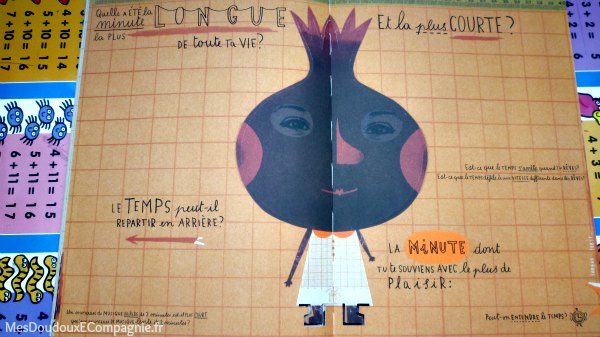 Quelle a ÉTÉ la
minute LONGUE
la PLUS
DE toute TA VIE?
Et la plus COURTE?
Est-ce que le TEMPS s'arrête quand TU RÊVES?
Est-ce que le TEMPS défile à une VITESSE différente dans les RÊVES?
LE TEMPS peut-il
REPARTIR en ARRIÈRE?
LA MiNUTE dont
TU TE SOUVIENS AVEC le plus de
PlaisiR:
Un morceau de MUSIQUE de 2 minutes est-il plus COURT
qu'un morceau de MUSIQUE lente de 2 minutes?
Peut-on ENTENDRE le TEMPS?
MesDoudouxECompagnie.fr
4 + 11 = 15
5 + 11 = 16
6 + 11 = 17